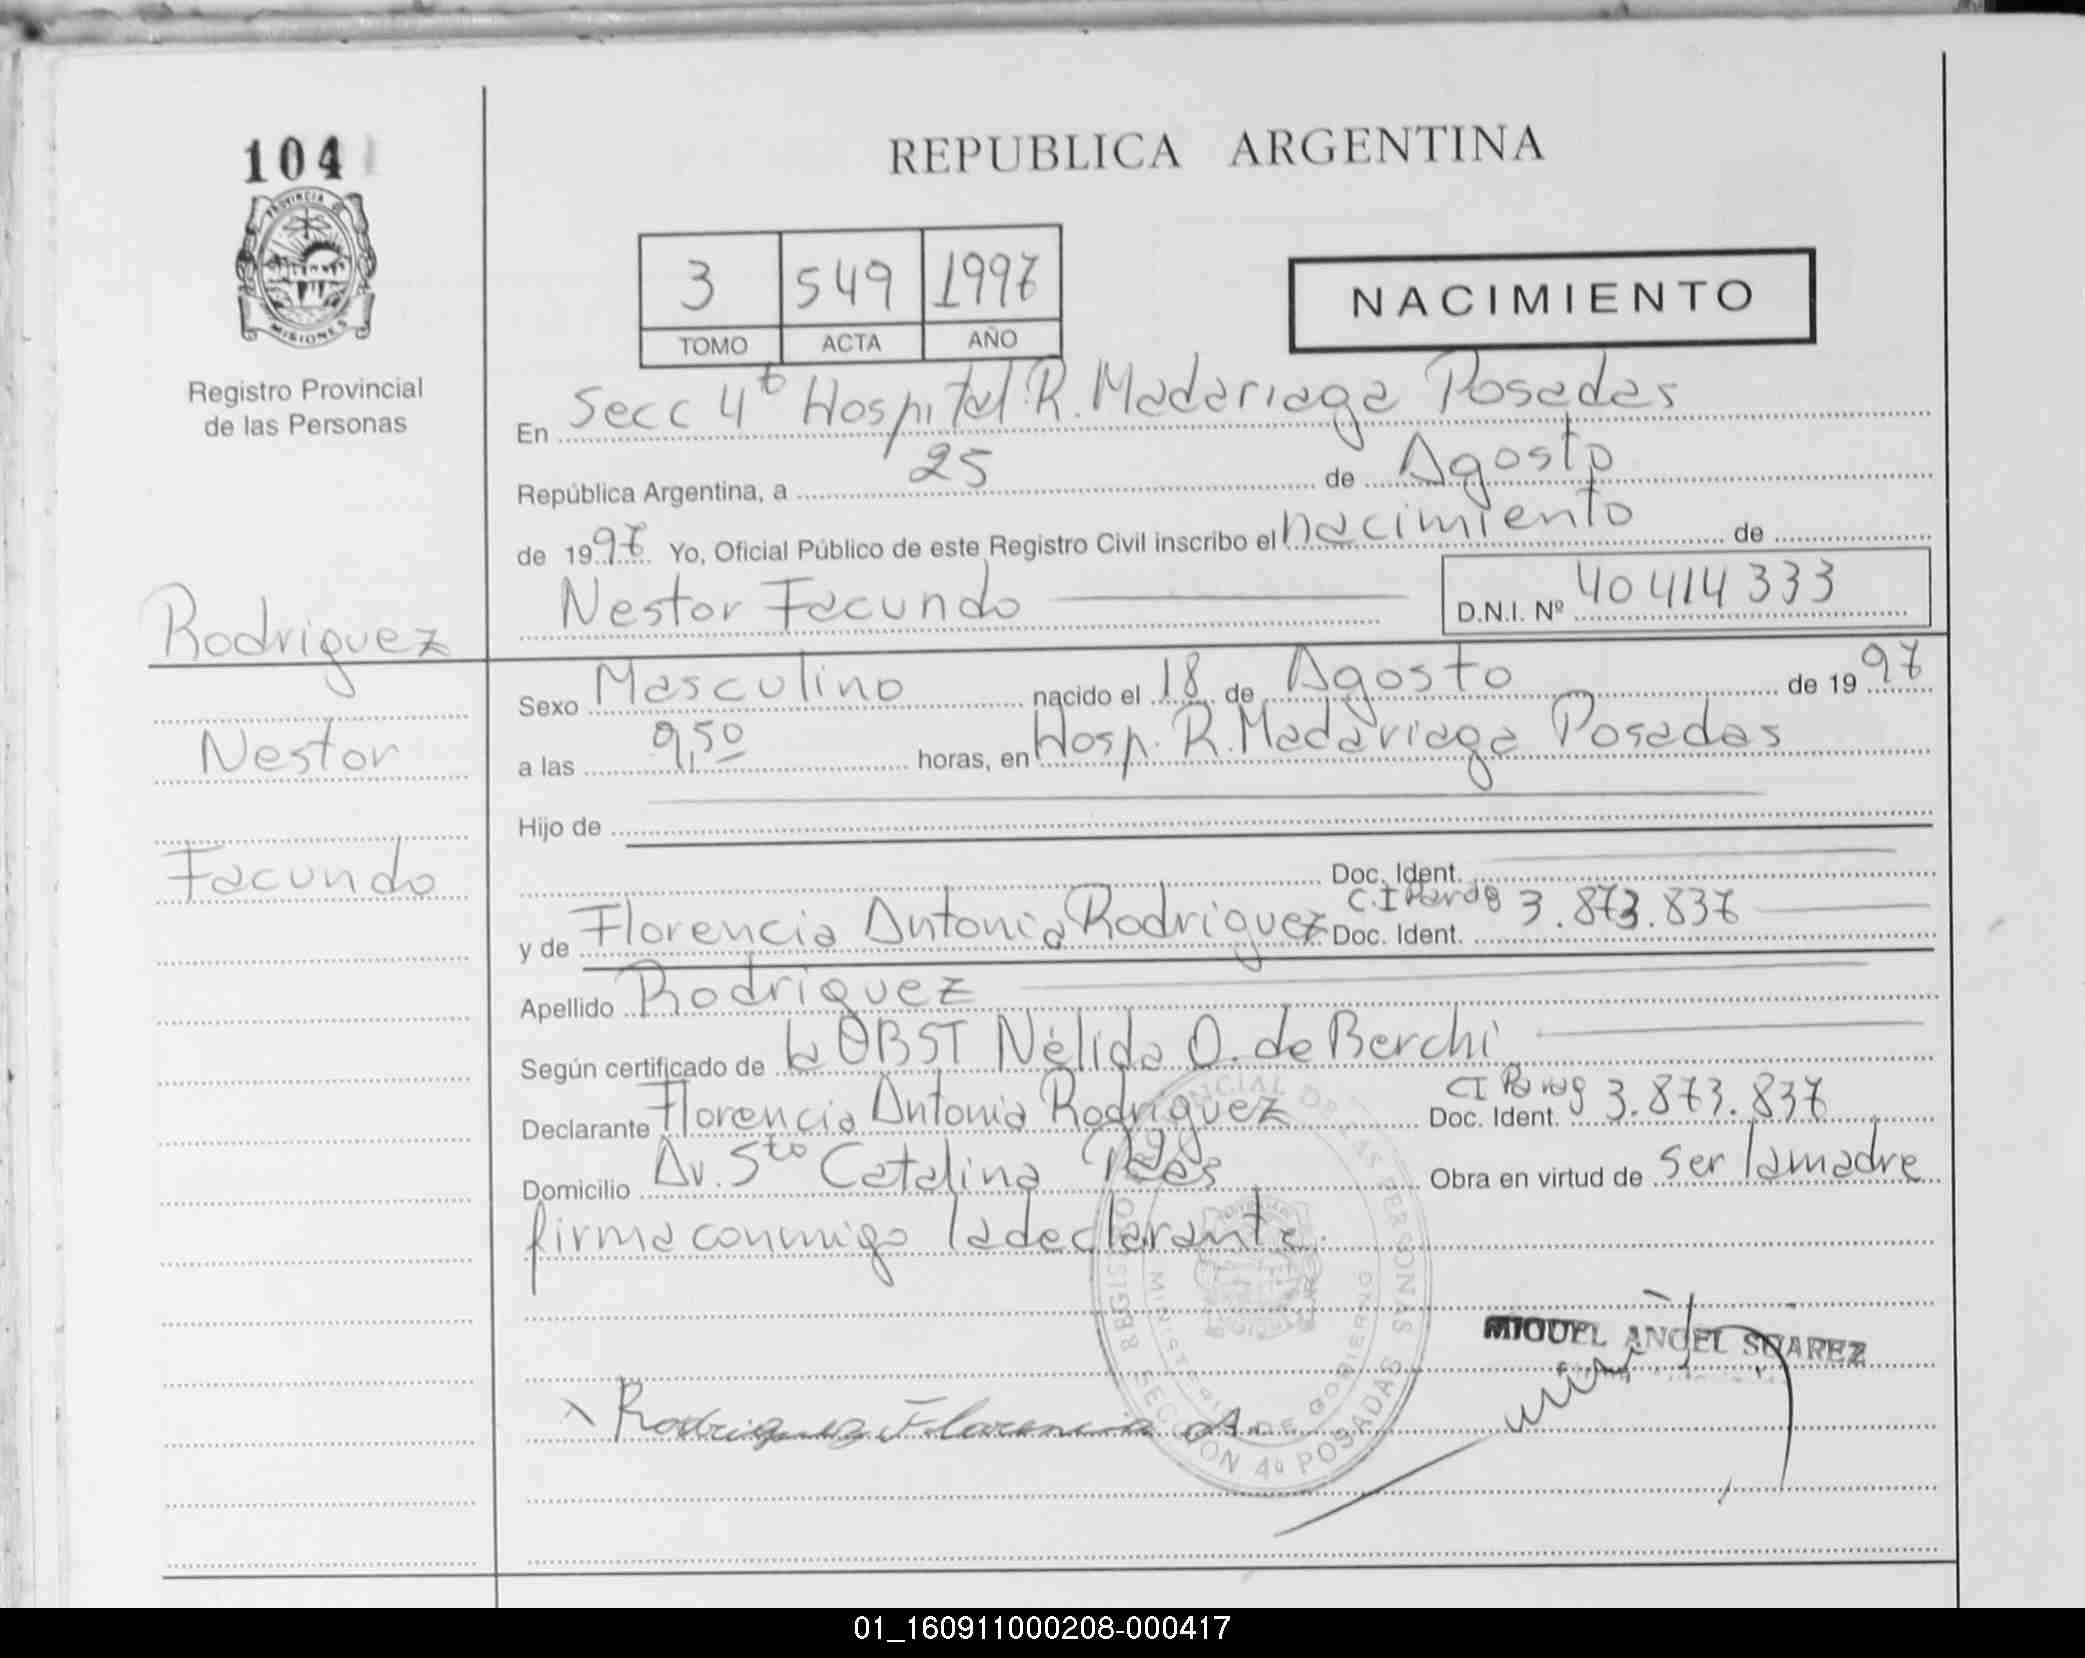 104
PROVINCIA DE
MISIONES
Registro Provincial
de las Personas
REPUBLICA ARGENTINA
3 549 1997
TOMO ACTA AÑO
NACIMIENTO
En Secc 4ta Hospital R. Madariaga Posadas
República Argentina, a 25 de Agosto
de 1997 Yo, Oficial Público de este Registro Civil inscribo el nacimiento de
Nestor Facundo D.N.I. Nº 40 414 333
Rodriguez
Nestor
Facundo
Sexo Masculino nacido el 18 de Agosto de 1997
a las 9,50 horas, en Hosp. R. Madariaga Posadas
Hijo de
Doc. Ident.
y de Florencia Antonia Rodriguez Doc. Ident. C.I Parag 3.873.837
Apellido Rodriguez
Según certificado de la OBST Nélida O. de Berchi
Declarante Florencia Antonia Rodriguez Doc. Ident. CI Parag 3.873.837
Domicilio Av. Sta Catalina Pdas Obra en virtud de ser la madre
firma conmigo la declarante.
MIGUEL ANGEL SUAREZ
Rodriguez Florencia A.
REGISTRO PROVINCIAL DE LAS PERSONAS
MINISTERIO DE GOBIERNO
SECCION 4º POSADAS
01_160911000208-000417